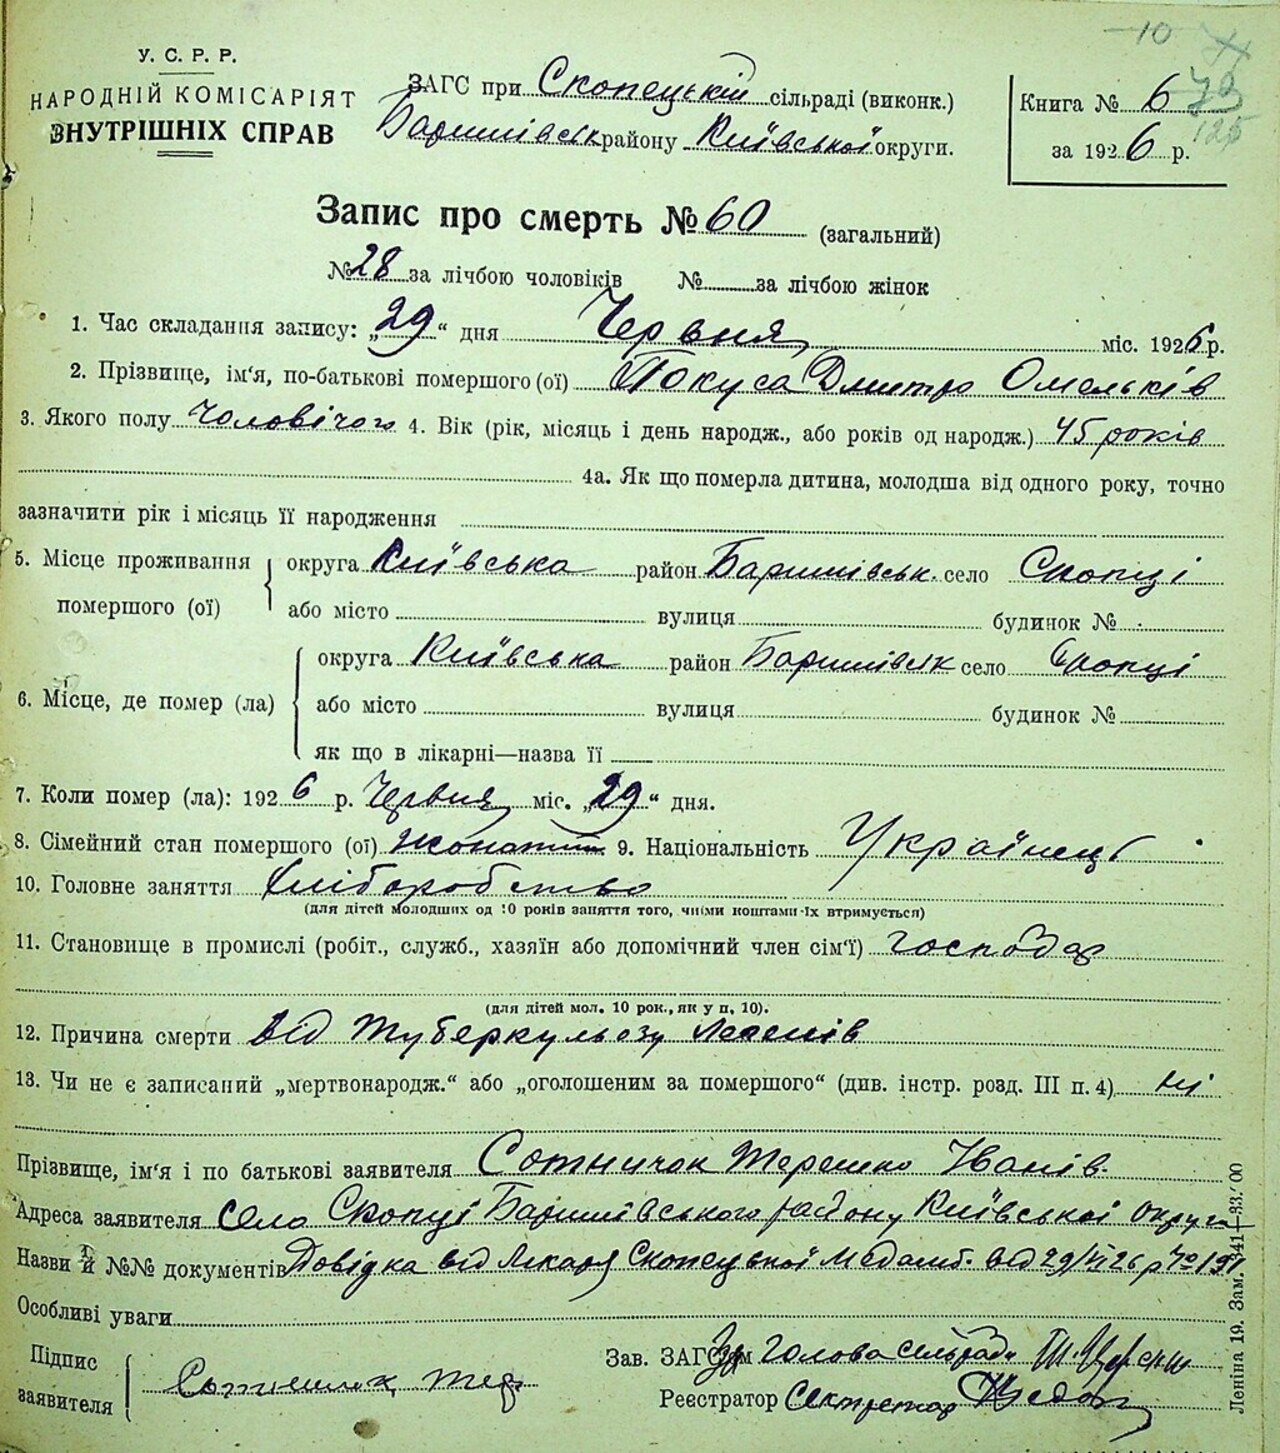 10
У. С. Р. Р.
НАРОДНІЙ КОМІСАРІЯТ
ВНУТРІШНІХ СПРАВ
ЗАГС при Скопецькій сільраді (виконк.)
Баришівськ району Київської округи.
Книга № 6
за 1926 р.
Запис про смерть № 60 (загальний)
№ 28 за лічбою чоловіків № за лічбою жінок
1. Час складання запису: „29“ дня Червня міс. 1926 р.
2. Прізвище, ім‘я, по-батькові помершого (ої) Покуса Дмитро Омельків
3. Якого полу Чоловічого 4. Вік (рік, місяць і день народж., або років од народж.) 45 років
4а. Як що померла дитина, молодша від одного року, точно
зазначити рік і місяць її народження
5. Місце проживання помершого (ої) округа Київська район Баришівськ. село Скопці
або місто вулиця будинок №
6. Місце, де помер (ла) округа Київська район Баришівськ село Скопці
або місто вулиця будинок №
як що в лікарні—назва її
7. Коли помер (ла): 1926 р. Червня міс. „29“ дня.
8. Сімейний стан помершого (ої) жонатий 9. Національність Українець
10. Головне заняття хліборобство
(для дітей молодших од 10 років заняття того, чиїми коштами їх втримується)
11. Становище в промислі (робіт., служб., хазяїн або допомічний член сім‘ї) господар
(для дітей мол. 10 рок., як у п. 10).
12. Причина смерти від туберкульозу легенів
13. Чи не є записаний „мертвонародж.“ або „оголошеним за помершого“ (див. інстр. розд. III п. 4) ні
Прізвище, ім‘я і по батькові заявителя Сотничок Терешко Іванів.
Адреса заявителя село Скопці Баришівського району Київської округи
Назви й №№ документів Довідка від Лікаря Скопецької Медамб. від 29/VI 26 р
Особліві уваги
Підпис заявителя
Зав. ЗАГСом Голова сельради
Реєстратор Секретар
Леніна 19. Зам.